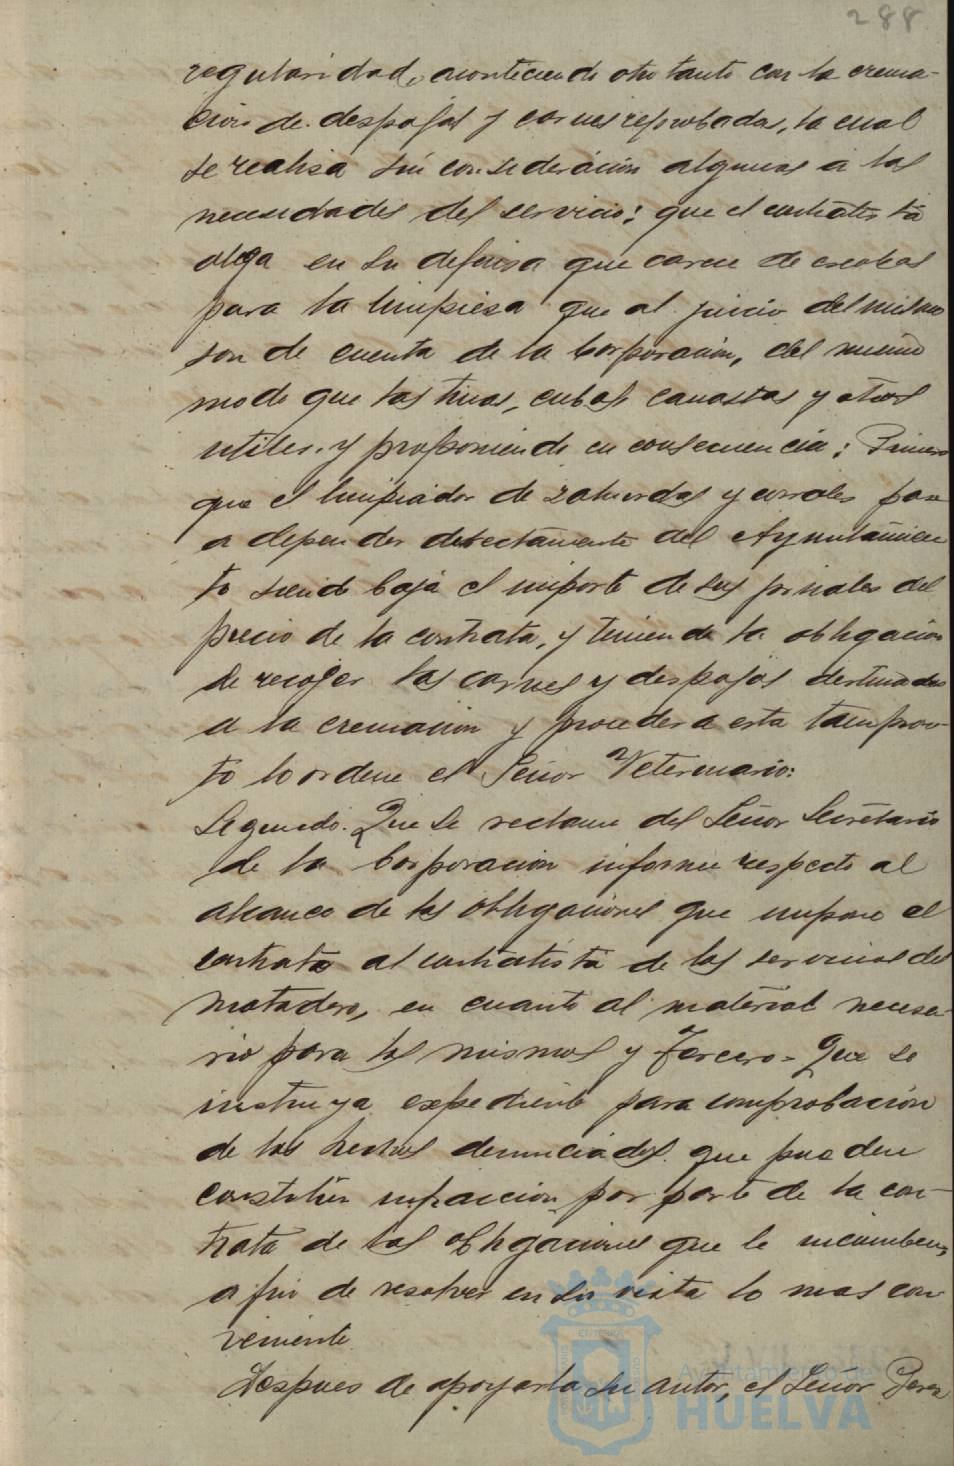 288
regularidad, aconteciendo otro tanto con la crema-
ción de despojos y carnes reprobadas, la cual
se realiza sin consideración algunas a las
necesidades del servicio; que el contratista
alega en su defensa que carece de escobas
para la limpieza que al juicio del mismo
son de cuenta de la Corporación, del mismo
modo que las tinas, cubas canastas y otros
utiles. y proponiendo en consecuencia: Primero
que el limpiador de zahurdas y corrales pase
a depender directamente del Ayuntamien
to siendo baja el importe de sus jornales del
precio de la contrata, y teniendo la obligación
de recojer las carnes y despojos destinados
a la cremación y proceder a esta tan pron-
to lo ordene el Señor Veterinario:
Segundo. Que se reclame del Señor Secretario
de la Corporación informe respecto al
alcance de las obligaciones que impone el
contrato al contratista de los servicios del
matadero, en cuanto al material necesa-
rio para los mismos y Tercero- Que se
instruya expediente para comprobación
de los hechos denunciados que pueden
constituir infracción por parte de la con-
trata de las obligaciones que le incumben,
a fin de resolver en su vista lo mas con
veniente.
Despues de apoyarla su autor, el Señor Perez
Ayuntamiento de
HUELVA